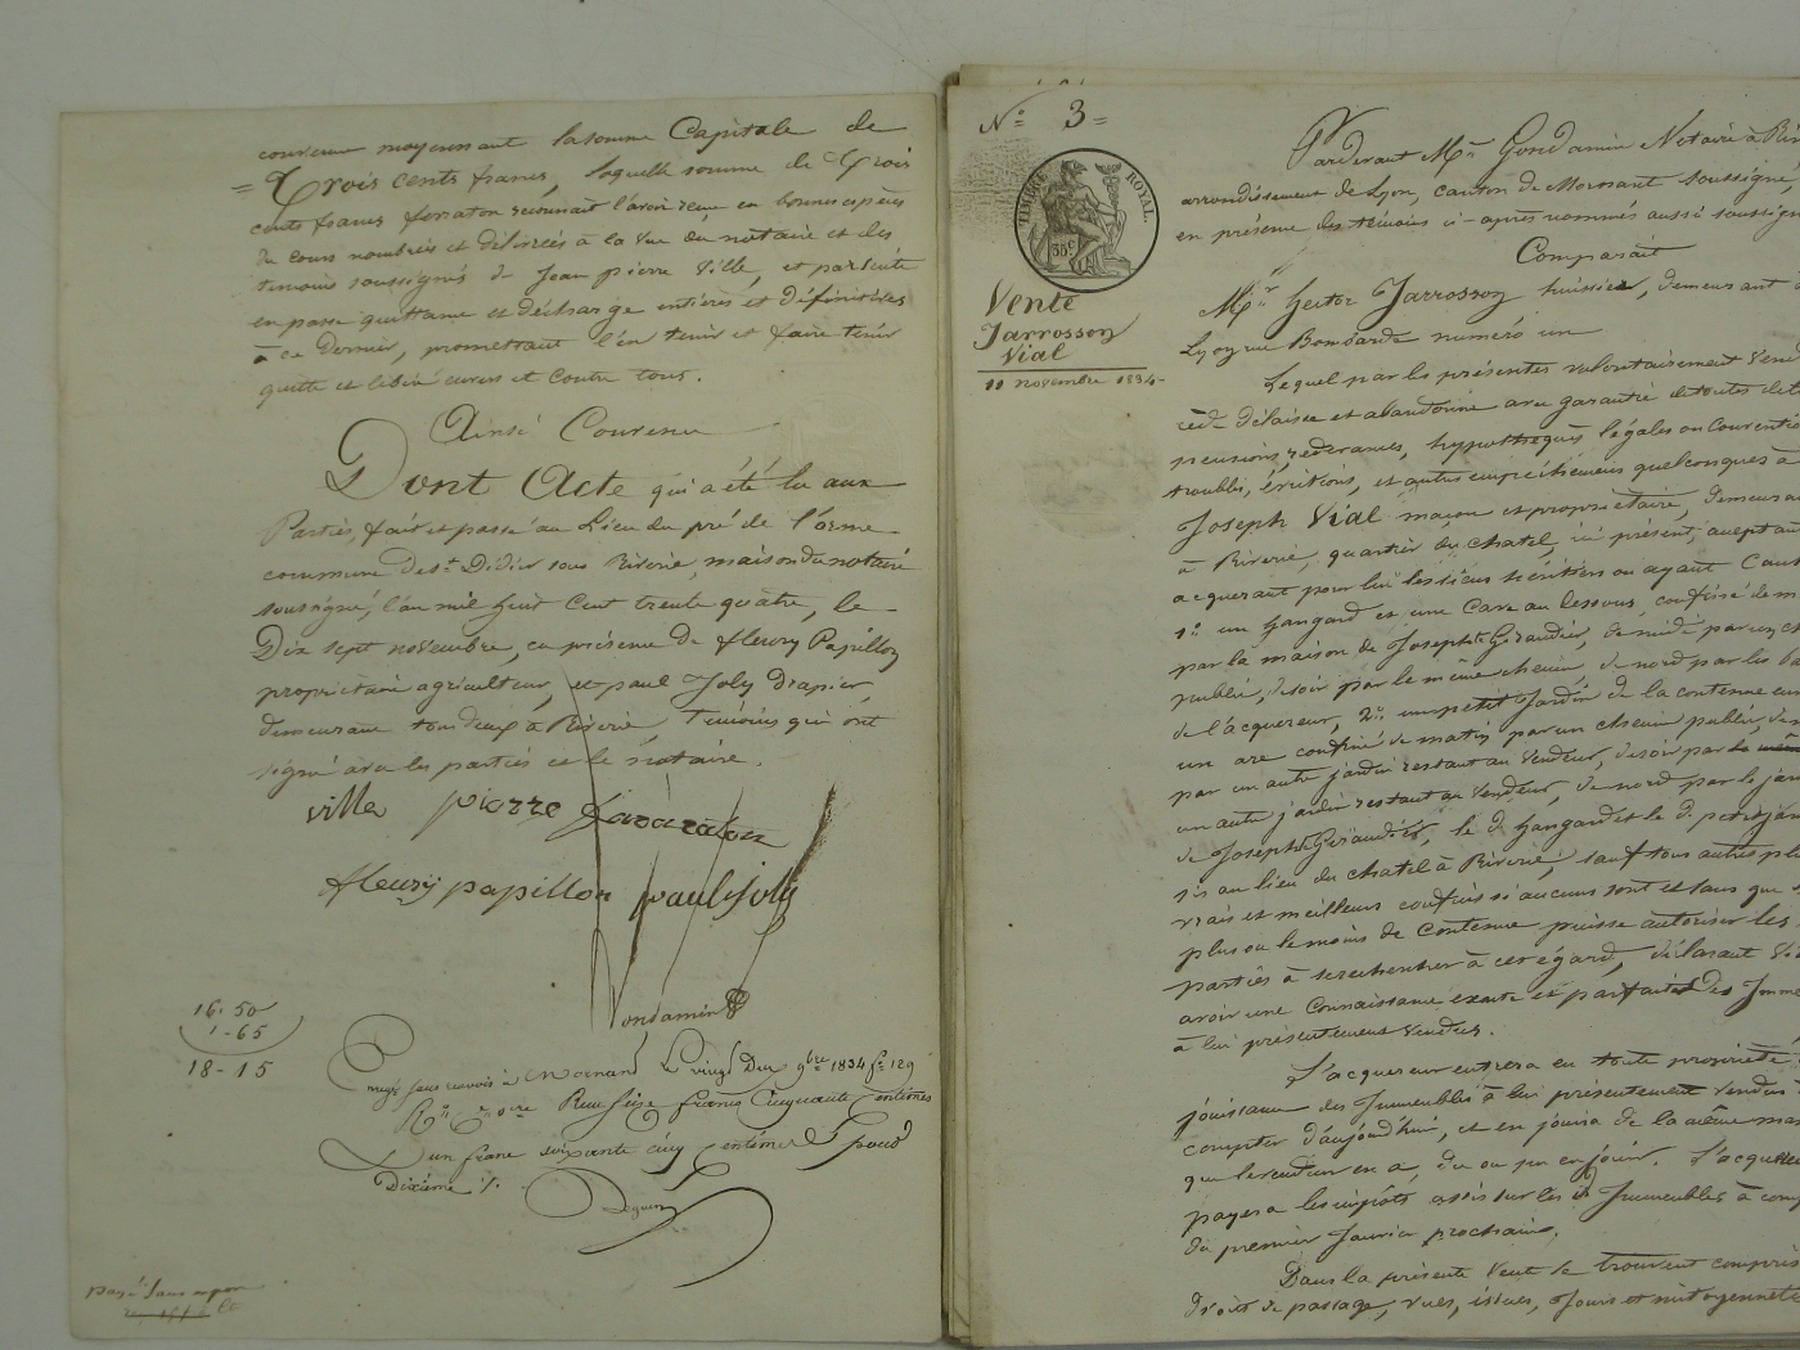 convenu moyennant la somme Capitale de
= Trois cents francs, laquelle somme de Trois
cents francs ferraton reconnait l'avoir reçue en bonnes espèces
du cours nombrées et délivrées à la vue du notaire et des
temoins soussignés de Jean pierre Ville, et par suite
en passe quittance et décharge entières et définitives
à ce dernier, promettant l'en tenir et faire tenir
quitte et libéré envers et contre tous.
Ainsi Convenu
Dont Acte qui a été lu aux
Parties, fait et passé au Lieu du pré de l'orme
commune de st Didier sous Riverie, maison du notaire
soussigné, l'an mil huit Cent trente quatre, le
Dix sept novembre, en présence de fleury Papillon
propriétaire agriculteur, et paul Joly drapier,
demeurant tous deux à Riverie, témoins qui ont
signé avec les parties et le notaire.
ville pierre
fleury papillon paul joly
Gondamin
16. 50
1 - 65
18 - 15
Enregé sans renvois à Mornant Le vingt Deux 9bre 1834 fo 129
Reçu seize francs Cinquante Centimes
un franc soixante cinq centimes pour
Dixième %.
payé sans
No 3 =
TIMBRE ROYAL.
35c
Vente
Jarrosson
Vial
11 novembre 1834 -
Pardevant Me Gondamin Notaire à Riv
arrondissement de Lyon, canton de Mornant soussigné,
en présence des témoins ci-après nommés aussi soussign
Comparait
Mr hector Jarrosson huissier, demeurant à
Lyon rue Bombarde numéro un
Lequel par les présentes volontairement vend
cède délaisse et abandonne avec garantie de toutes dett
pensions, redevances, hypothèques légales ou Conventio
troubles, évictions, et autres empêchemens quelconques à
Joseph Vial maçon et propriétaire, demeura
à Riverie, quartier du chatel, ici présent, acceptant
acquerant pour lui les siens héritiers ou ayant Caus
1o un hangard et une Cave au dessous, confiné de m
par la maison de Joseph Giraudier, de midi par un ch
public, de soir par le même chemin, de nord par les ba
de l'acquereur, 2o un petit Jardin de la contenue en
un are confiné de matin par un chemin public, de
par un autre jardin restant au Vendeur, de soir par le même
un autre jardin restant au Vendeur, de nord par le jar
de Joseph Giraudier, le d. hangard et le d. petit jar
sis au lieu du chatel à Riverie, sauf tous autres plu
vrais et meilleurs confins si aucuns sont et sans que
plus ou le moins de Contenue puisse autoriser les
parties à se rechercher à cet égard, déclarant Vi
avoir une Connaissance exacte et parfaite des Imme
à lui présentement Vendus.
L'acquereur entrera en toute propriété
jouissance des Immeubles à lui présentement Vendus
compter d'aujourdhui, et en jouira de la même man
que le vendeur en a, du ou pu en jouir. L'acquereu
payera les impôts assis sur les ds Immeubles à comp
du premier Janvier prochain.
Dans la présente Vente se trouvent compris
droits de passage, vues, issues, Jours et mitoyennetés